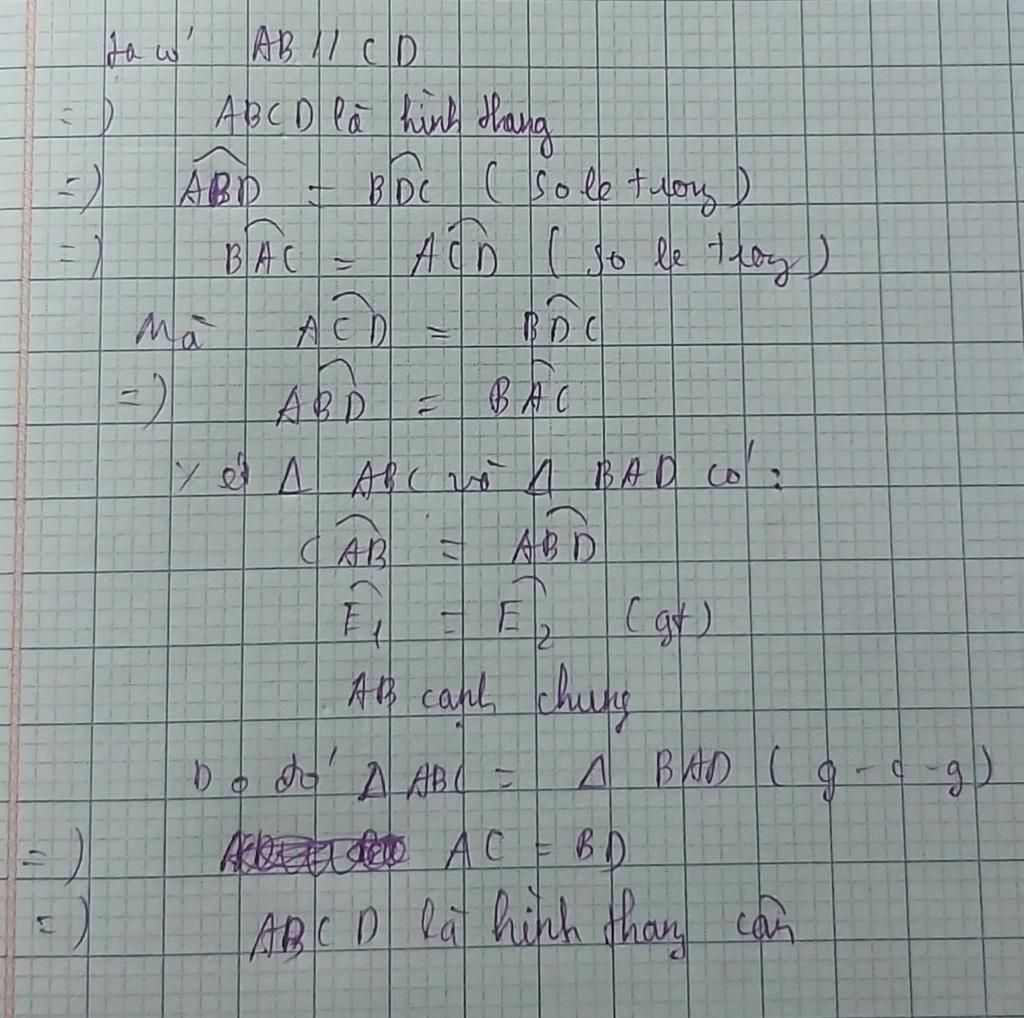 Ta có AB // CD
=) ABCD là hình thang
=) \widehat{ABD} = \widehat{BDC} (so le trong)
=) \widehat{BAC} = \widehat{ACD} (so le trong)
Mà \widehat{ACD} = \widehat{BDC}
=) \widehat{ABD} = \widehat{BAC}
Xét Δ ABC và Δ BAD có:
\widehat{CAB} = \widehat{ABD}
\widehat{E_1} = \widehat{E_2} (gt)
AB cạnh chung
Do đó Δ ABC = Δ BAD (g-c-g)
=) AC = BD
=) ABCD là hình thang cân